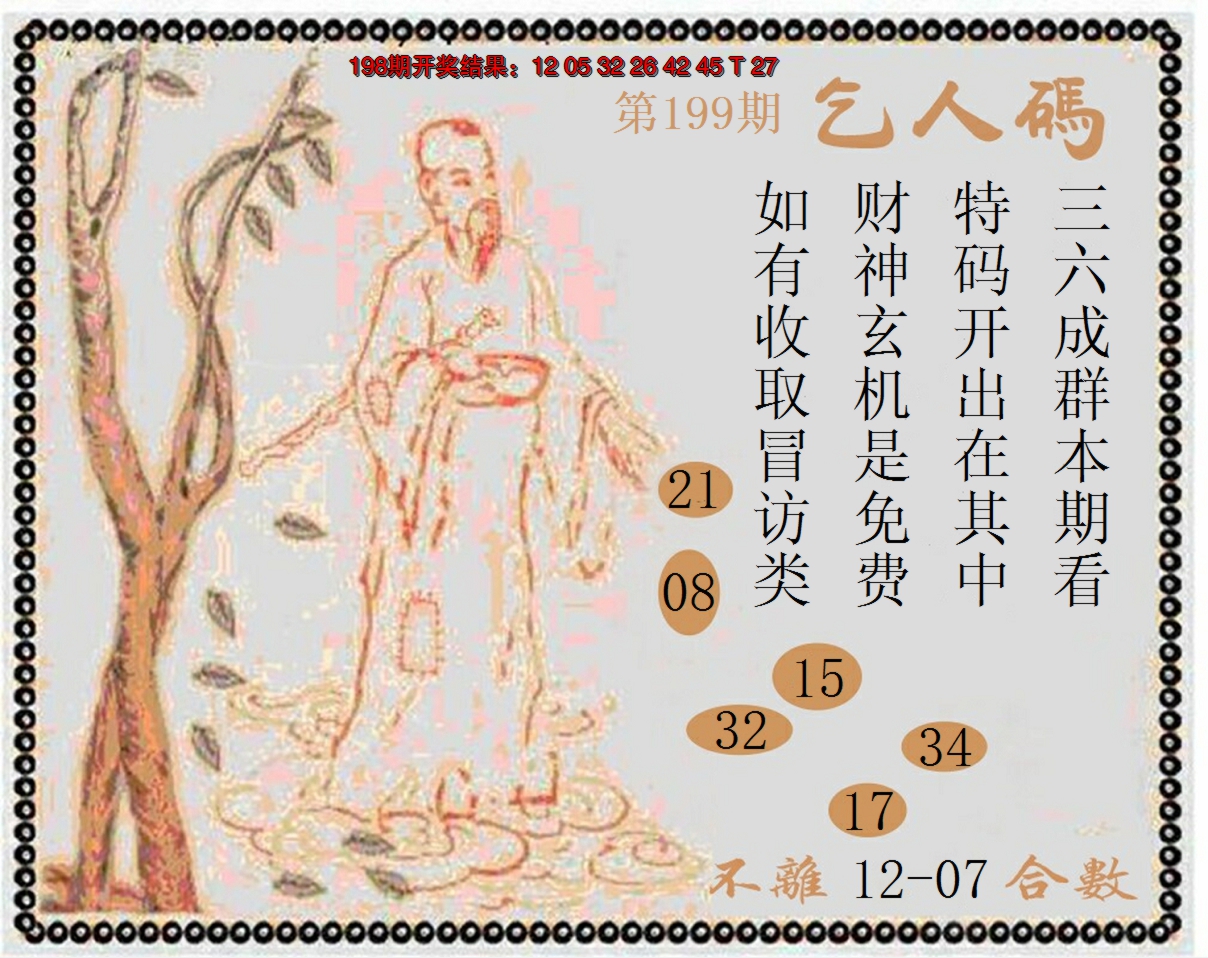 198期开奖结果：12 05 32 26 42 45 T 27
第199期 乞人碼
三六成群本期看
特码开出在其中
财神玄机是免费
如有收取冒访类
21
08
15
32
34
17
不離 12-07 合數